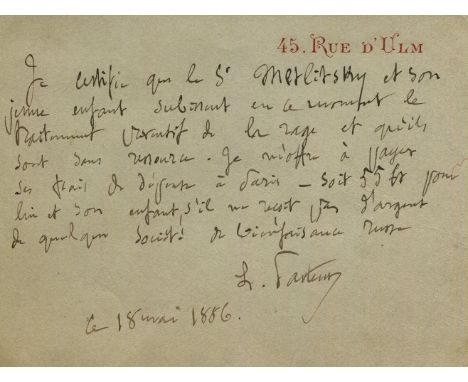 45. RUE D'ULM
Je certifie que le Sr Metlitsky et son
jeune enfant subissent en ce moment le
traitement préventif de la rage et qu'ils
sont sans ressource. Je m'offre à payer
ses frais de à Paris — soit 55 fr pour
lui et son enfant, s'il ne reçoit pas d'argent
de quelque société de bienfaisance russe
L. Pasteur
Ce 18 mai 1886.